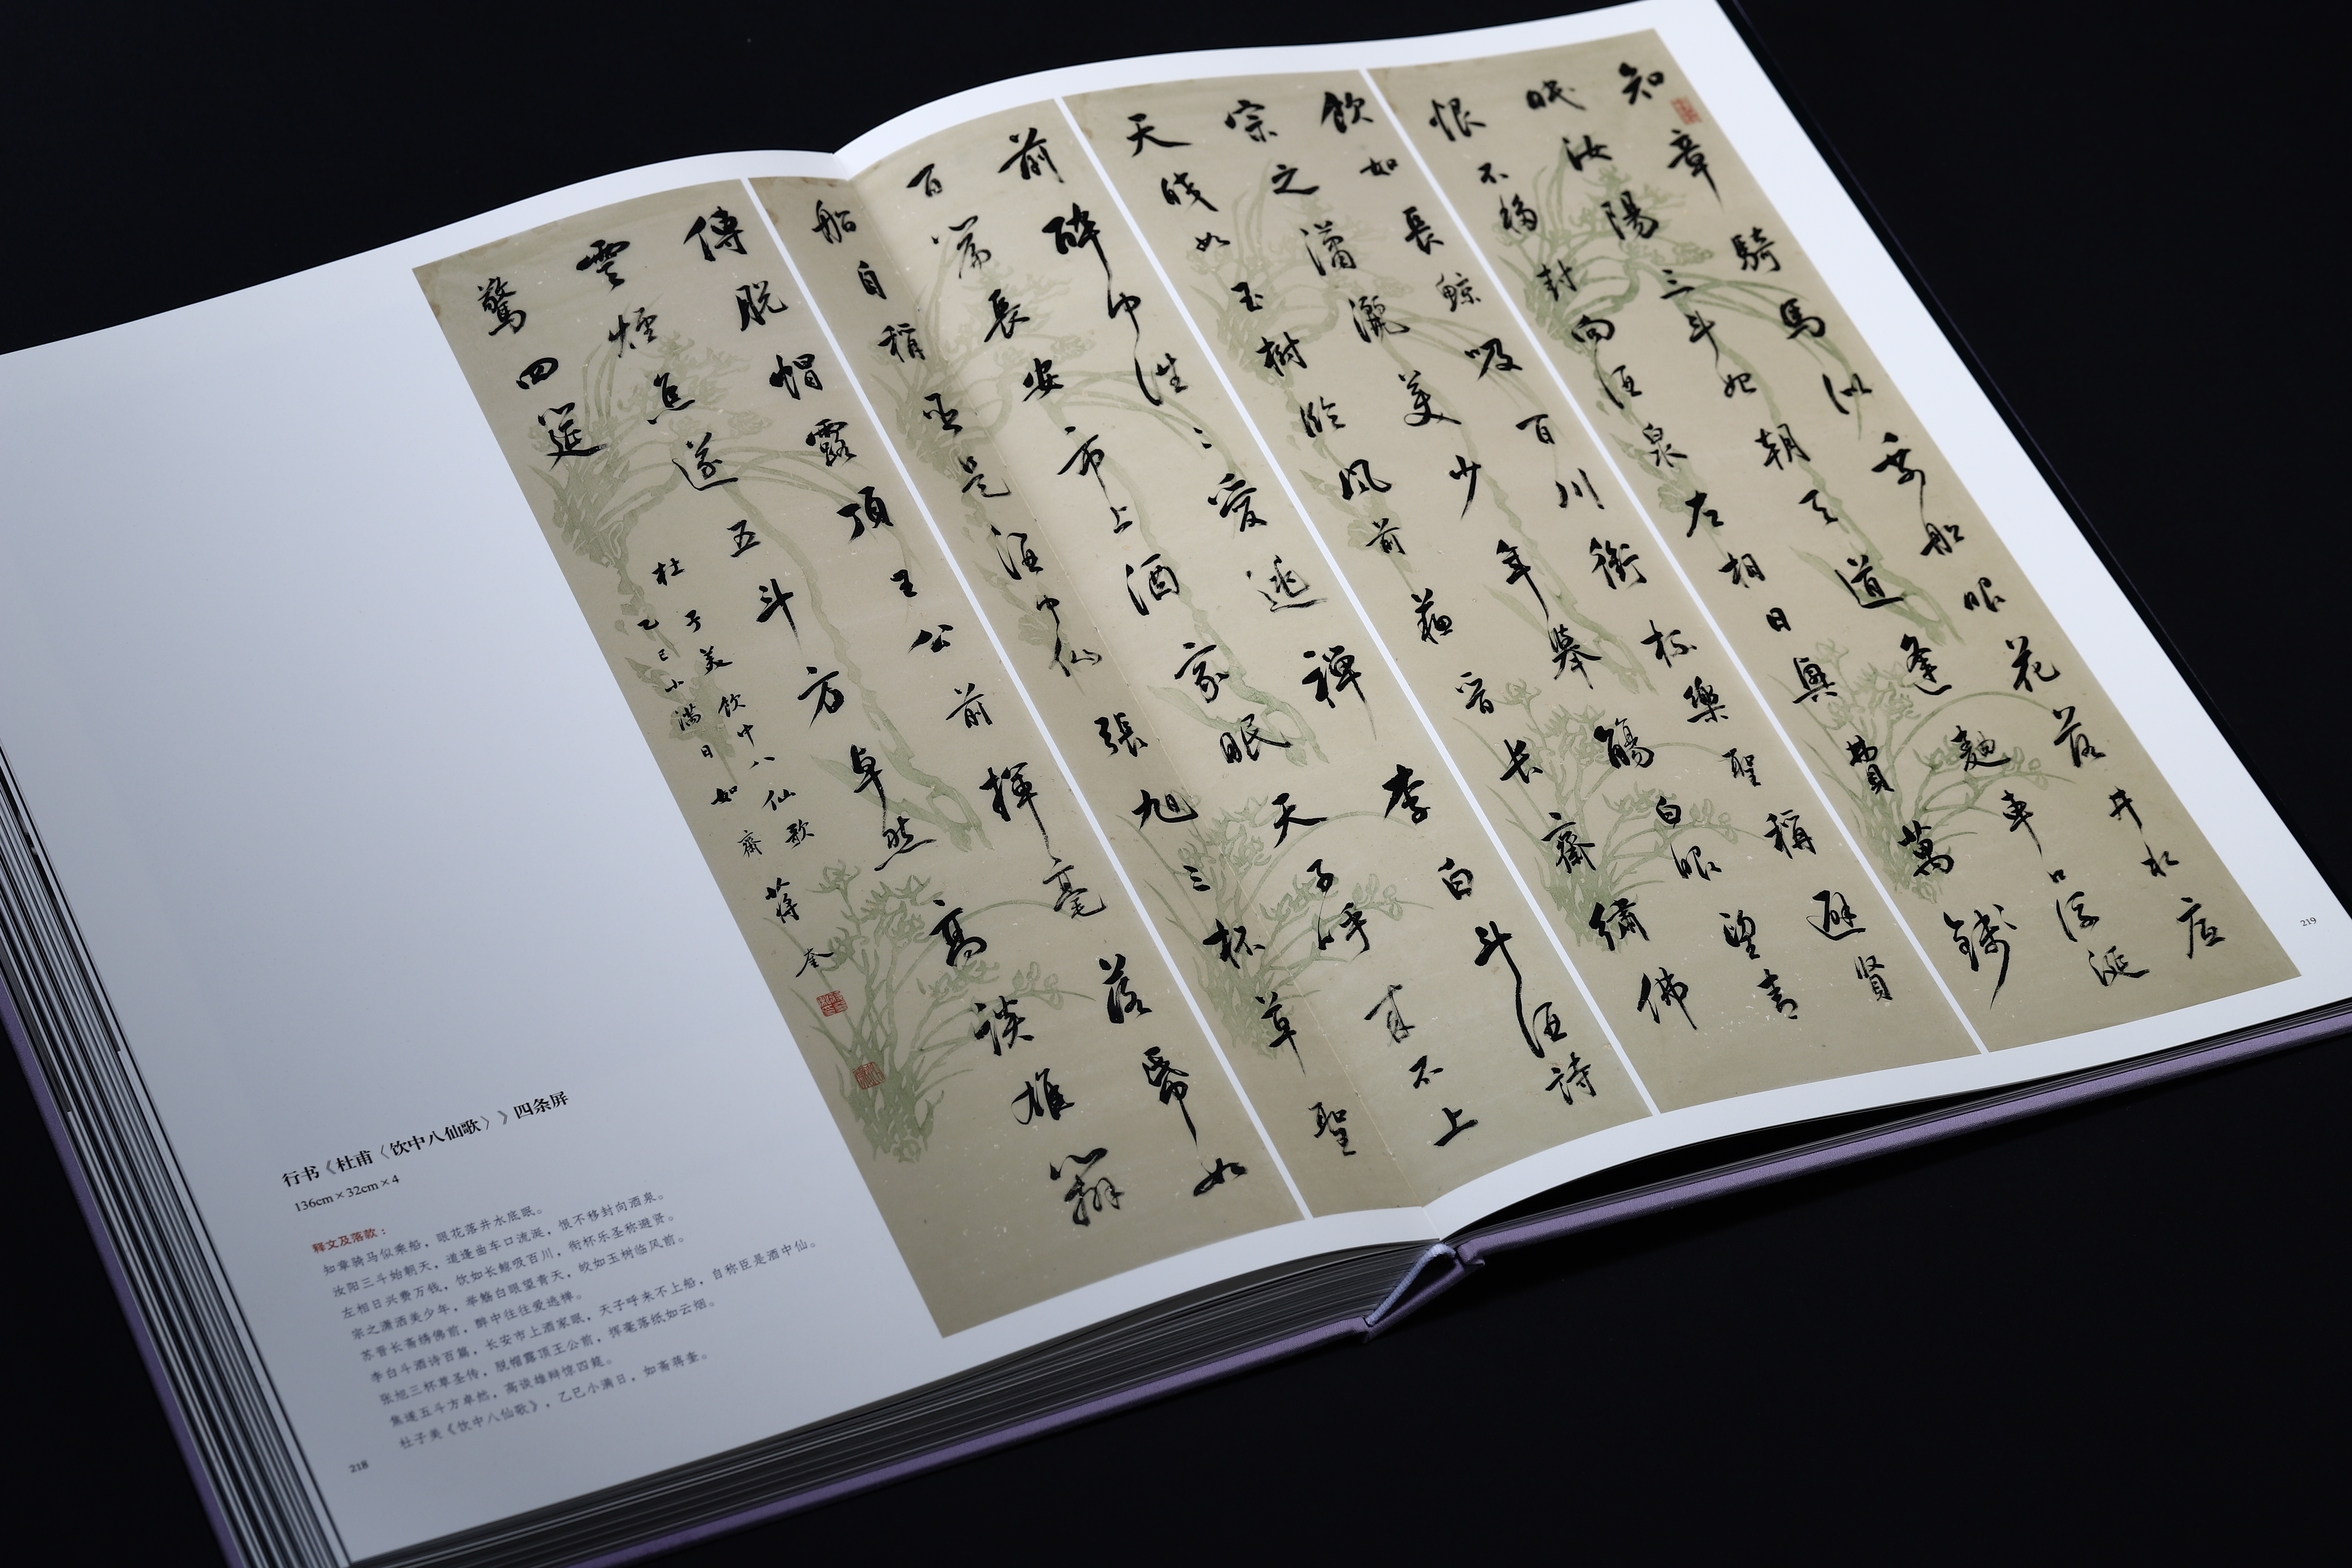 知章騎馬似乘船眼花落井水底
眠汝陽三斗始朝天道逢麯車口流涎
恨不移封向酒泉左相日興費萬錢
飲如長鯨吸百川銜杯樂聖稱避賢
宗之瀟灑美少年舉觴白眼望青
天皎如玉樹臨風前蘇晉長齋繡佛
前醉中往〻愛逃禪李白斗酒詩
百篇長安市上酒家眠天子呼來不上
船自稱臣是酒中仙張旭三杯草聖
傳脫帽露頂王公前揮毫落帋如
雲煙焦遂五斗方卓然高談雄辯
驚四筵
杜子美飲中八仙歌
乙巳小滿日如齋蔣奎
行书《杜甫〈饮中八仙歌〉》四条屏
136cm×32cm×4
释文及落款：
知章骑马似乘船，眼花落井水底眠。
汝阳三斗始朝天，道逢曲车口流涎，恨不移封向酒泉。
左相日兴费万钱，饮如长鲸吸百川，衔杯乐圣称避贤。
宗之潇洒美少年，举觞白眼望青天，皎如玉树临风前。
苏晋长斋绣佛前，醉中往往爱逃禅。
李白斗酒诗百篇，长安市上酒家眠，天子呼来不上船，自称臣是酒中仙。
张旭三杯草圣传，脱帽露顶王公前，挥毫落纸如云烟。
焦遂五斗方卓然，高谈雄辩惊四筵。
杜子美《饮中八仙歌》，乙巳小满日，如斋蒋奎。
218
219